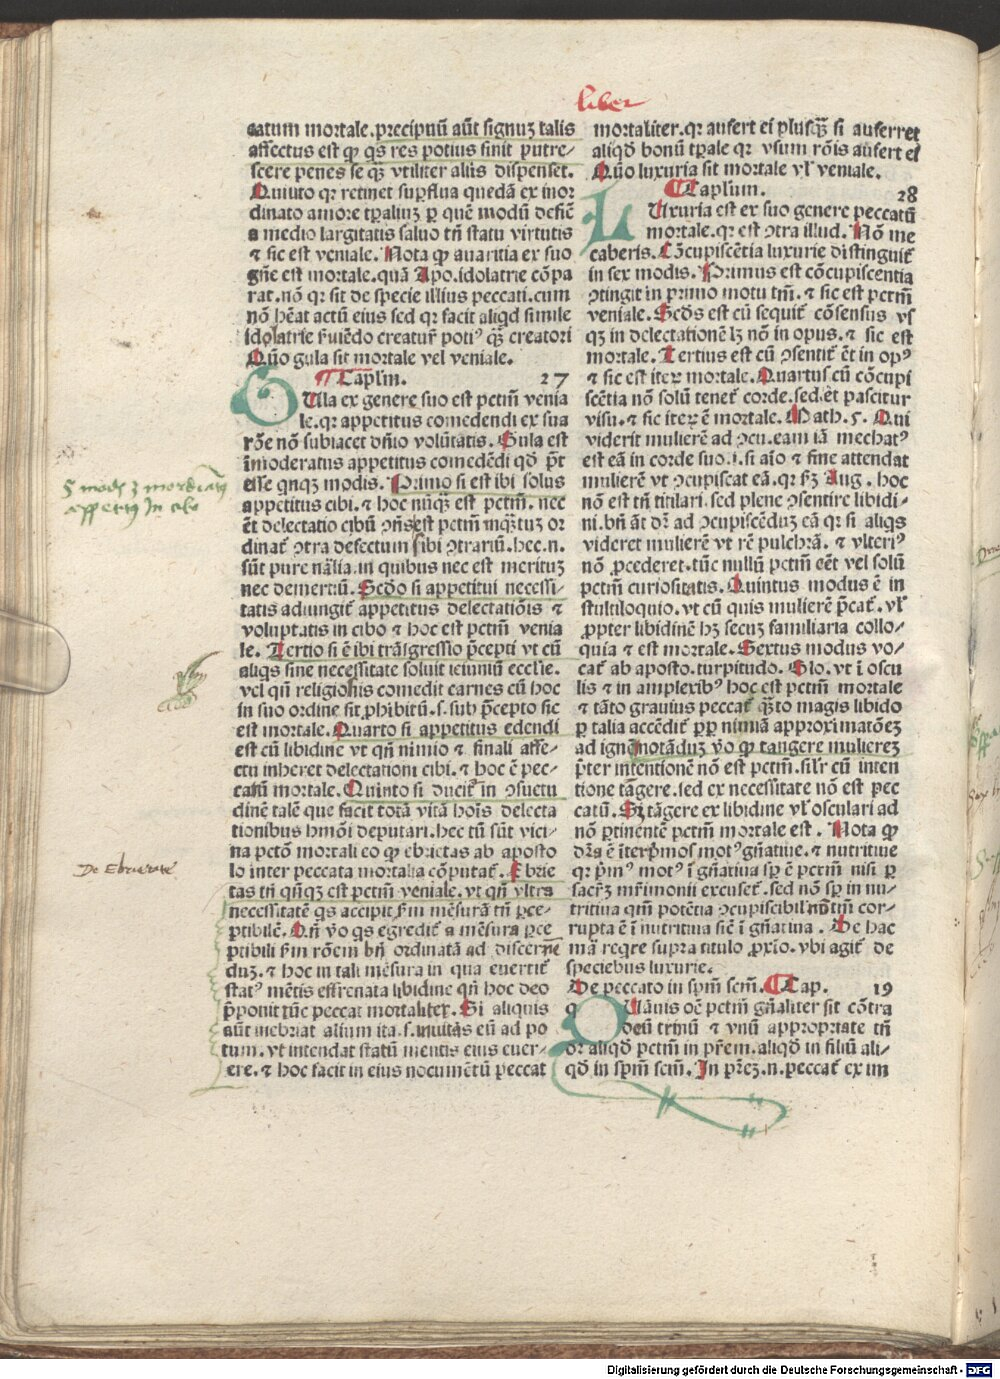 liber
catum mortale.precipuū aūt signuʒ talis
affectus est ꝙ q̄s res potius sinit putre-
scere penes se q̄ʒ vtiliter aliis dispenset.
Quinto qꝛ retinet suꝑflua quedā ex inor
dinato amore tꝑaliuʒ ꝑ quē modū defiē
a medio largitatis saluo tn̄ statu virtutis
⁊ sic est veniale. Nota ꝙ auaritia ex suo
gn̄e est mortale.quā Apo.idolatrie cōpa
rat.nō qꝛ sit de specie illius peccati.cum
nō hēat actū eius sed qꝛ facit aliqd simile
idolatrie ẜuiēdo creatur̄ potiꝰ q̄ʒ creatori
Quō gula sit mortale vel veniale.
Caplm̄. 27
GUla ex genere suo est pctm̄ venia
le.qꝛ appetitus comedendi ex sua
rōe nō subiacet dn̄io volūtatis. Gula est
īmoderatus appetitus comedēdi qd̄ pt̄
esse qnqʒ modis. Primo si est ibi solus
appetitus cibi. ⁊ hoc nūq̄ʒ est pctm̄. nec
ēt delectatio cibū ꝯn̄s est pctm̄ inq̄ʒtuʒ or
dinat̄ ꝯtra defectum sibi ꝯtrariū.hec.n.
sūt pure nāl̄ia.in quibus nec est merituʒ
nec demeritū. Scd̄o si appetitui necessi-
tatis adiungit̄ appetitus delectatiōis ⁊
voluptatis in cibo ⁊ hoc est pctm̄ venia
le. Tertio si ē ibi trāsgressio p̄cepti vt cū
aliq̄s sine necessitate soluit ieiuniū eccl̄ie.
vel qn̄ religiosus comedit carnes cū hoc
in suo ordine sit ꝓhibitū.s.sub p̄cepto sic
est mortale. Quarto si appetitus edendi
est cū libidine vt qn̄ nimio ⁊ finali affe-
ctu inheret delectationi cibi.⁊ hoc ē pec-
catū mortale. Quinto si ducit̄ in ꝯsuetu
dinē talē que facit totā vitā hoīs delecta
tionibus hmōi deputari.hec tū sūt vici-
na pctō mortali eo ꝙ ebrietas ab aposto
lo inter peccata mortalia cōputat̄. Ebrie
tas tn̄ qn̄qʒ est pctm̄ veniale.vt qn̄ vltra
necessitatē q̄s accipit ẜm mēsurā tn̄ ꝑce-
ptibilē. Qn̄ vo q̄s egredit̄ a mēsura ꝑce
ptibili ẜm rōem bn̄ ordinatā ad discerne
duʒ.⁊ hoc in tali mēsura in qua euertit̄
statꝰ mētis effrenata libidine qn̄ hoc deo
p̄ponit tūc peccat mortaliter. Si aliquis
aūt inebriat alium ita.s.inuitās eū ad po
tum.vt intendat statū mentis eius euer-
tere.⁊ hoc facit in eius nocumētū peccat
mortaliter.qꝛ aufert ei plusq̄ʒ si auferret
aliqd̄ bonū tꝑale qꝛ vsum rōis aufert ei
Quō luxuria sit mortale vl̄ veniale.
Caplum. 28
LUxuria est ex suo genere peccatū
mortale.qꝛ est ꝯtra illud. Nō me
caberis. Cōcupiscētia luxurie distinguit̄
in sex modis. Primus est cōcupiscentia
ꝯtingit in primo motu tm̄. ⁊ sic est pctm̄
veniale. Scd̄s est cū sequit̄ cōsensus vs
qʒ in delectationē lʒ nō in opus.⁊ sic est
mortale. Tertius est cū ꝯsentit̄ ēt in opꝰ
⁊ sic est iteꝝ mortale. Quartus cū cōcupi
scētia nō solū tenet̄ corde.sed.et pascitur
visu.⁊ sic iteꝝ ē mortale. Math.5. Qui
viderit mulierē ad ꝯcu.eam iā mechatꝰ
est eā in corde suo.i.si aīo ⁊ fine attendat
mulierē vt ꝯcupiscat eā.qꝛ ẜʒ Aug. hoc
nō est tn̄ titilari.sed plene ꝯsentire libidi-
ni.bn̄ āt dꝛ̄ ad ꝯcupiscēduʒ eā qꝛ si aliq̄s
videret mulierē vt rē pulchrā. ⁊ vlteriꝰ
nō ꝓcederet.tūc nullū pctm̄ eēt vel solū
pctm̄ curiositatis. Quintus modus ē in
stultiloquio.vt cū quis mulierē p̄cat̄.vl̄
ꝓpter libidinē hʒ secuʒ familiaria collo-
quia ⁊ est mortale. Sextus modus vo-
cat̄ ab aposto.turpitudo. Glo.vt ī oscu
lis ⁊ in amplexibꝰ hoc est pctm̄ mortale
⁊ tāto grauius peccat̄ q̄ʒto magis libido
ꝑ talia accēdit̄ ꝓꝑ nimiā approximatōeʒ
ad ignē notāduʒ vō ꝙ tangere mulierēʒ
p̄ter intentionē nō est pctm̄.sil̄r cū inten
tione tāgere.sed ex necessitate nō est pec
catū. Sʒ tāgere ex libidine vl̄ osculari ad
nō ꝑtinentē pctm̄ mortale est. Nota ꝙ
dr̄a ē īter pīmos motꝰ gn̄atiue. ⁊ nutritiue
qꝛ pīmꝰ motꝰ ī gn̄atiua sꝑ ē pctm̄ nisi ꝑ
sacrʒ mr̄imonii excuset̄.sed nō sꝑ in nu-
tritiua qm̄ potētia ꝯcupiscibil̄ nō tm̄ cor-
rupta ē ī nutritiua siē ī gn̄atiua. De hac
mā reqr̄e supra titulo ꝓxīo.vbi agit̄ de
speciebus luxurie.
De peccato in spm̄ scm̄. Cap. 19
QUāuis oē pctm̄ gn̄aliter sit cōtra
deū trinū ⁊ vnū appropriate tn̄
dꝛ aliqd̄ pctm̄ in pr̄em.aliqd̄ in filiū ali-
qd̄ in spm̄ scm̄. In pr̄eʒ.n.peccat̄ ex im
De Ebrietate
Digitalisierung gefördert durch die Deutsche Forschungsgemeinschaft - DFG